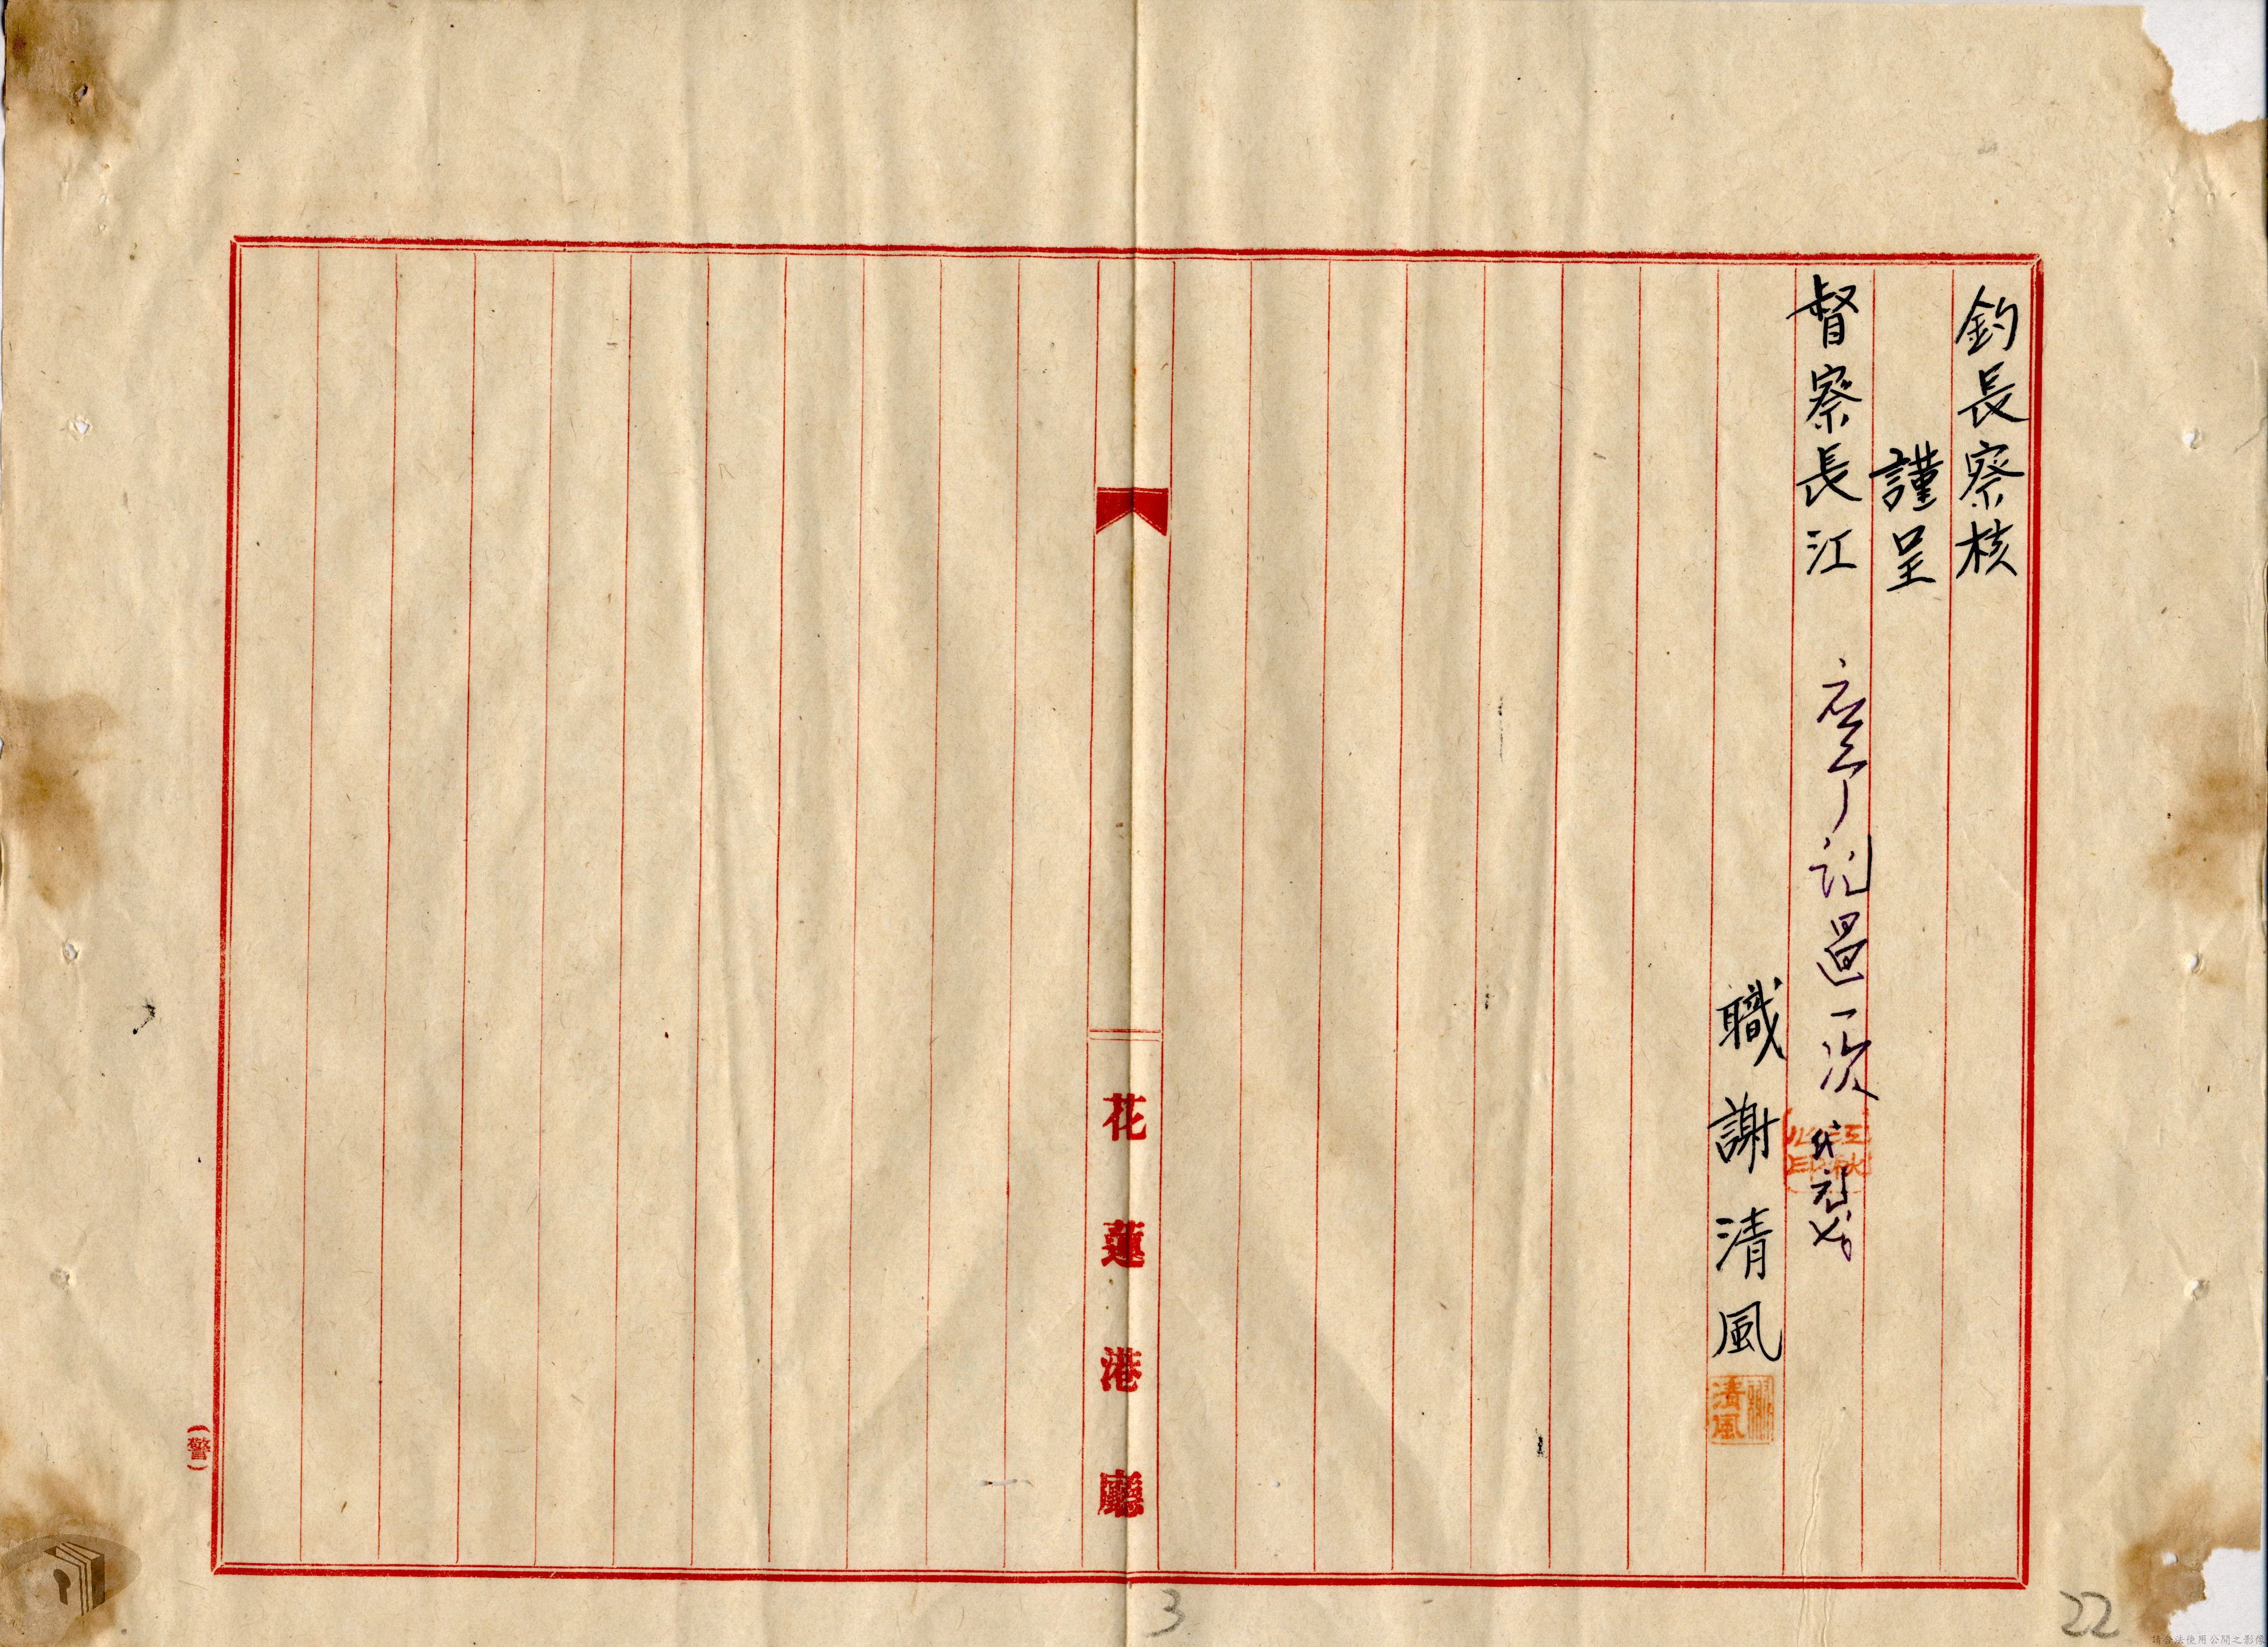 鈞長察核
謹呈
督察長江
應予記過一次
職謝清風
清風
花蓮港廳
(警)
3
22
請合法使用公開之影像